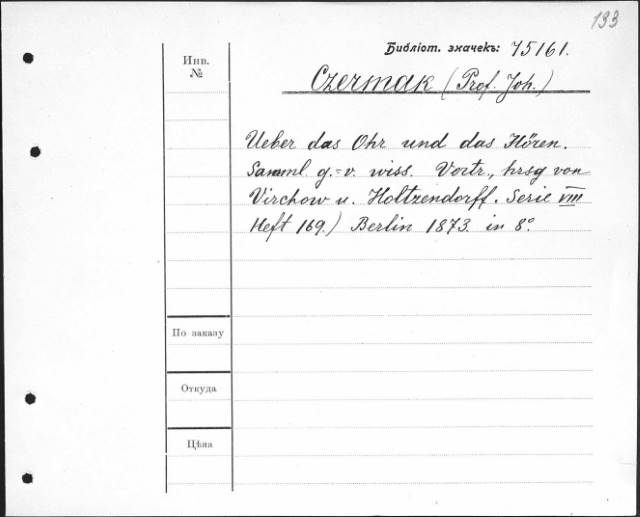 133
Библіот. значекъ: 75161.
Инв.
№
Czermak (Prof. Joh.)
Ueber das Ohr und das Hören.
Samml g.=v. wiss. Vortr., hrsg von
Virchow u. Holtzendorff. Serie VIII
Heft 169.) Berlin 1873. in 8°.
По заказу
Откуда
Цѣна